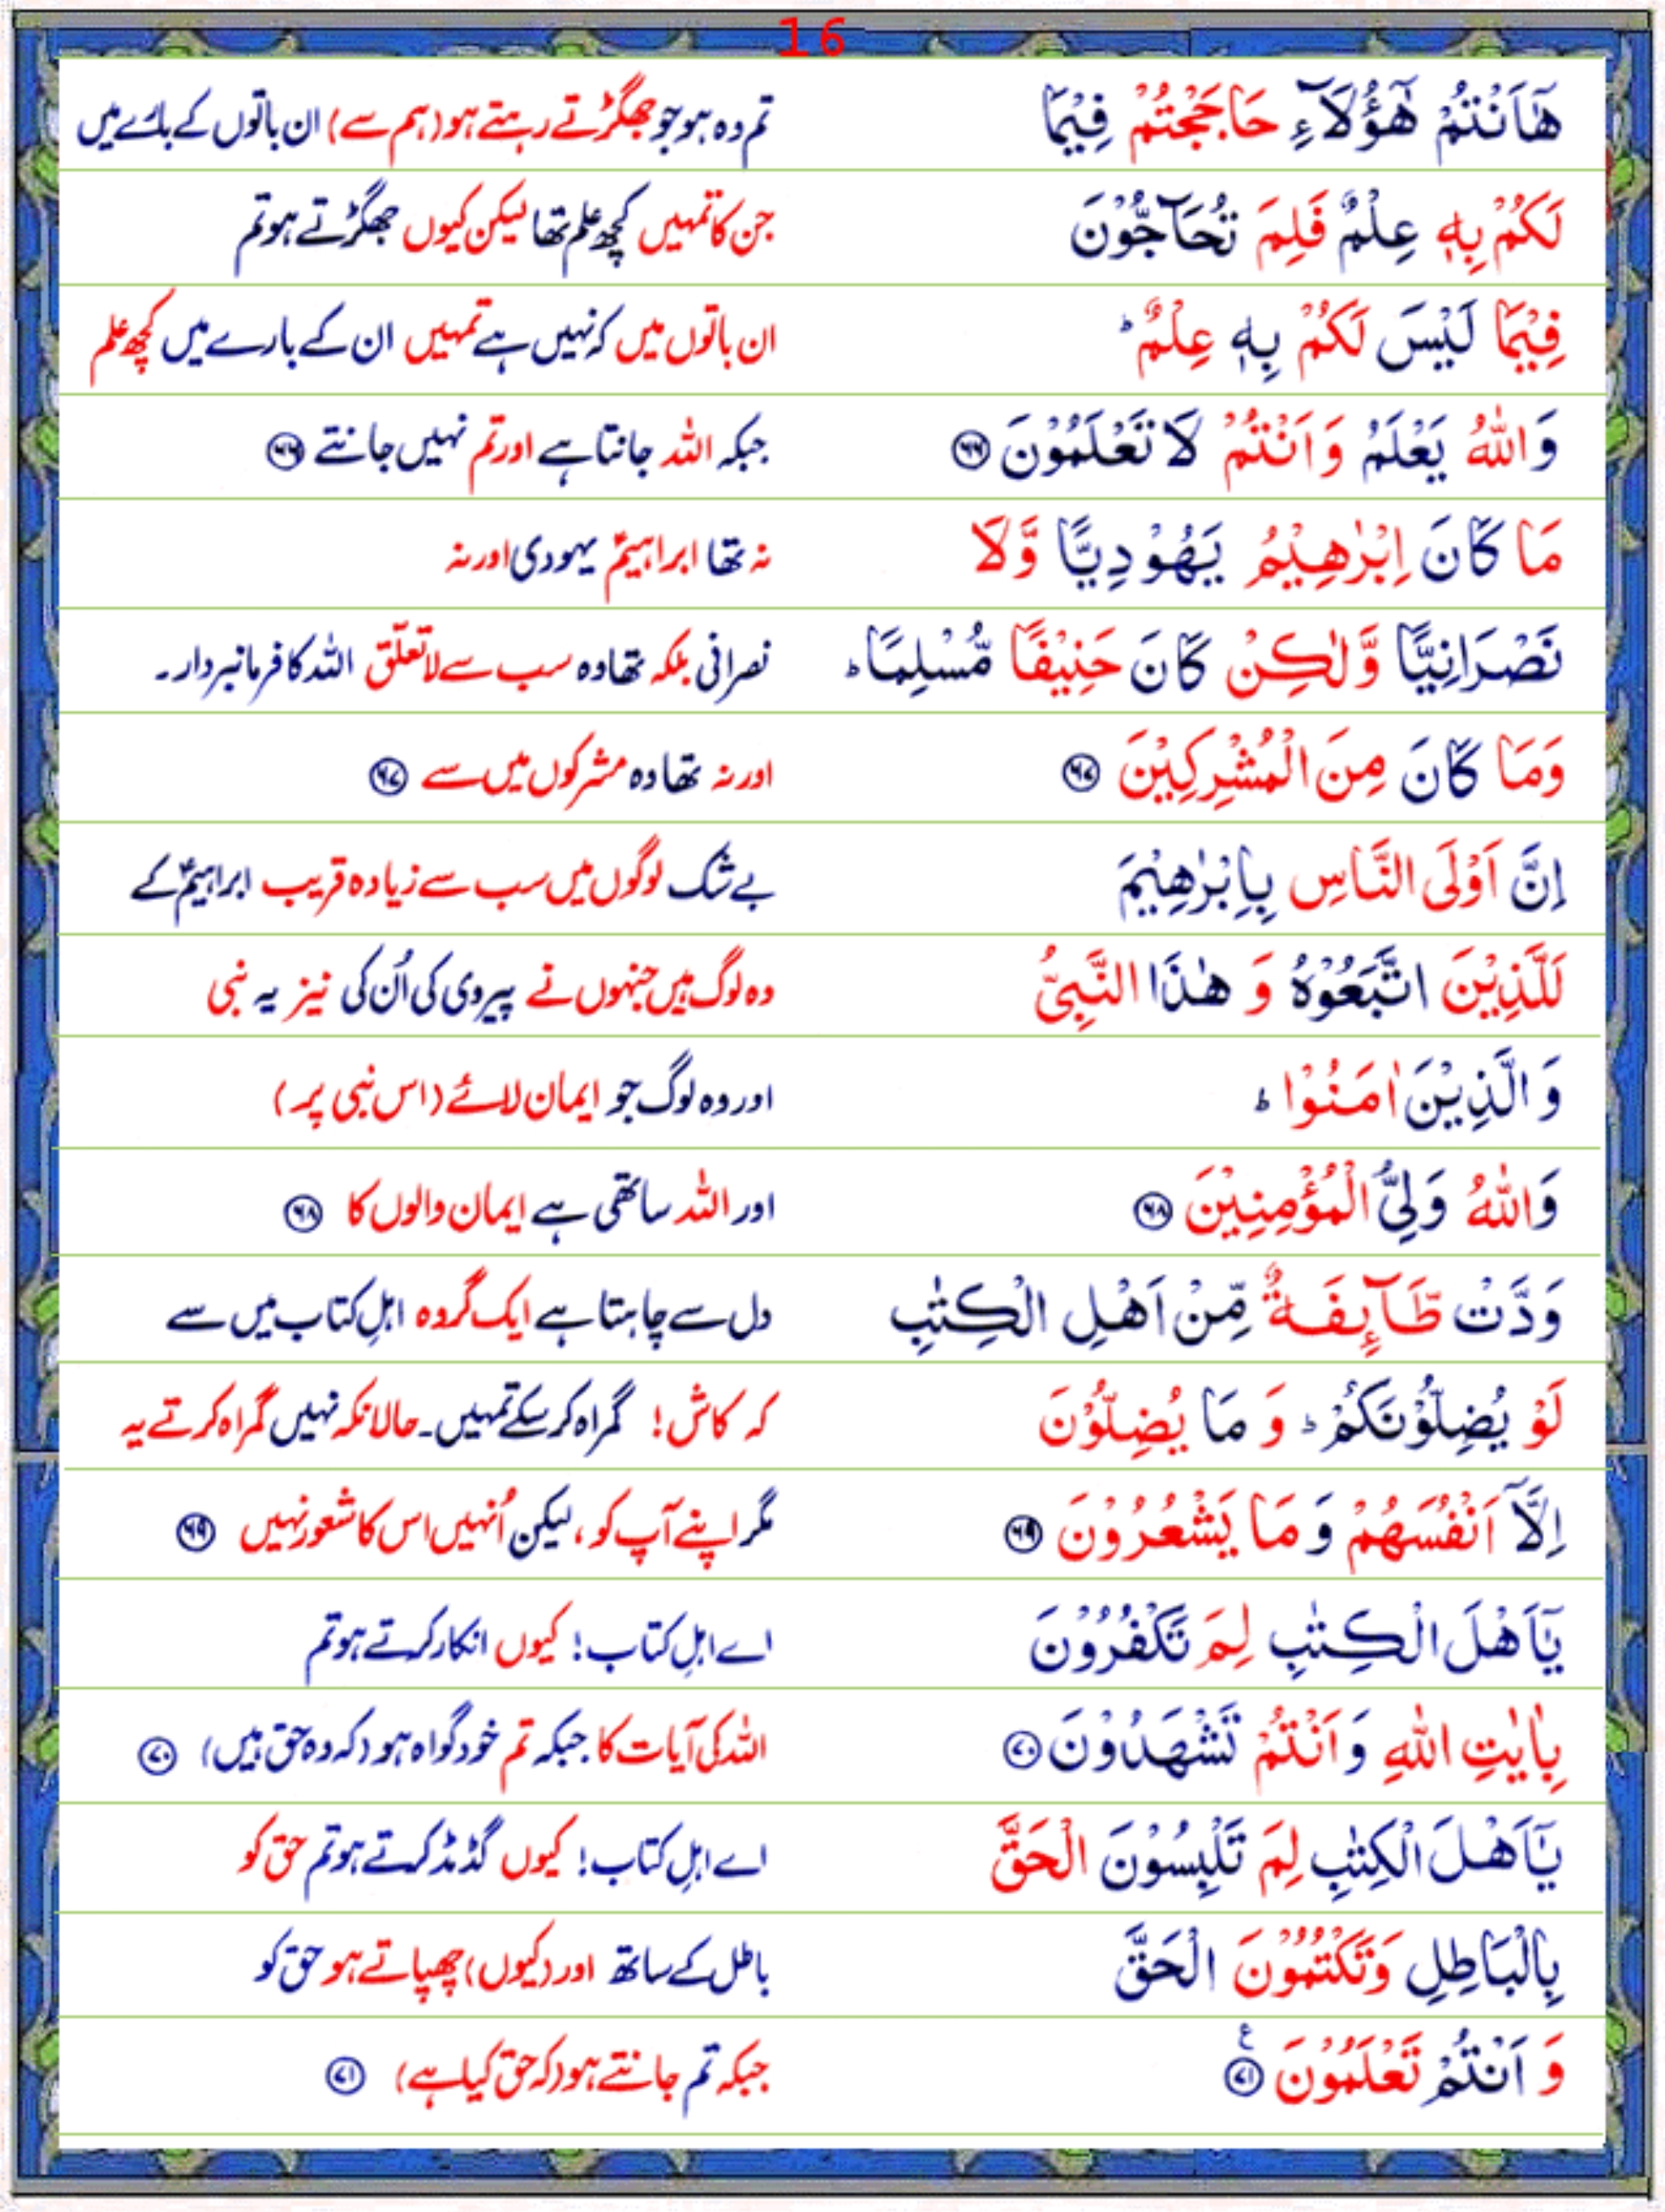 16
هٰۤاَنْتُمْ هٰۤؤُلَآءِ حَاجَجْتُمْ فِيْمَا تم وہ ہو جو جھگڑتے رہتے ہو (ہم سے) ان باتوں کے بارے میں
لَكُمْ بِهٖ عِلْمٌ فَلِمَ تُحَآجُّوْنَ جن کا تمہیں کچھ علم تھا لیکن کیوں جھگڑتے ہو تم
فِيْمَا لَيْسَ لَكُمْ بِهٖ عِلْمٌ ؕ ان باتوں میں کہ نہیں ہے تمہیں ان کے بارے میں کچھ علم
وَاللّٰهُ يَعْلَمُ وَاَنْتُمْ لَا تَعْلَمُوْنَ ۶۶ جبکہ اللہ جانتا ہے اور تم نہیں جانتے ۶۶
مَا كَانَ اِبْرٰهِيْمُ يَهُوْدِيًّا وَّلَا نہ تھا ابراہیمؑ یہودی اور نہ
نَصْرَانِيًّا وَّلٰكِنْ كَانَ حَنِيْفًا مُّسْلِمًا ؕ نصرانی بلکہ تھا وہ سب سے لاتعلّق اللہ کا فرمانبردار۔
وَمَا كَانَ مِنَ الْمُشْرِكِيْنَ ۶۷ اور نہ تھا وہ مشرکوں میں سے ۶۷
اِنَّ اَوْلَى النَّاسِ بِاِبْرٰهِيْمَ بے شک لوگوں میں سب سے زیادہ قریب ابراہیمؑ کے
لَلَّذِيْنَ اتَّبَعُوْهُ وَ هٰذَا النَّبِىُّ وہ لوگ ہیں جنہوں نے پیروی کی اُن کی نیز یہ نبی
وَالَّذِيْنَ اٰمَنُوْا ؕ اور وہ لوگ جو ایمان لائے (اس نبی پر)
وَاللّٰهُ وَلِىُّ الْمُؤْمِنِيْنَ ۶۸ اور اللہ ساتھی ہے ایمان والوں کا ۶۸
وَدَّتْ طَّآىِٕفَةٌ مِّنْ اَهْلِ الْكِتٰبِ دل سے چاہتا ہے ایک گروہ اہلِ کتاب میں سے
لَوْ يُضِلُّوْنَكُمْ ؕ وَ مَا يُضِلُّوْنَ کہ کاش! گمراہ کر سکے تمہیں۔ حالانکہ نہیں گمراہ کرتے یہ
اِلَّاۤ اَنْفُسَهُمْ وَمَا يَشْعُرُوْنَ ۶۹ مگر اپنے آپ کو، لیکن اُنہیں اس کا شعور نہیں ۶۹
يٰۤاَهْلَ الْكِتٰبِ لِمَ تَكْفُرُوْنَ اے اہلِ کتاب! کیوں انکار کرتے ہو تم
بِاٰيٰتِ اللّٰهِ وَاَنْتُمْ تَشْهَدُوْنَ ۷۰ اللہ کی آیات کا جبکہ تم خود گواہ ہو (کہ وہ حق ہیں) ۷۰
يٰۤاَهْلَ الْكِتٰبِ لِمَ تَلْبِسُوْنَ الْحَقَّ اے اہلِ کتاب! کیوں گڈمڈ کرتے ہو تم حق کو
بِالْبَاطِلِ وَتَكْتُمُوْنَ الْحَقَّ باطل کے ساتھ اور (کیوں) چھپاتے ہو حق کو
وَ اَنْتُمْ تَعْلَمُوْنَ ۷۱ ع جبکہ تم جانتے ہو (کہ حق کیا ہے) ۷۱